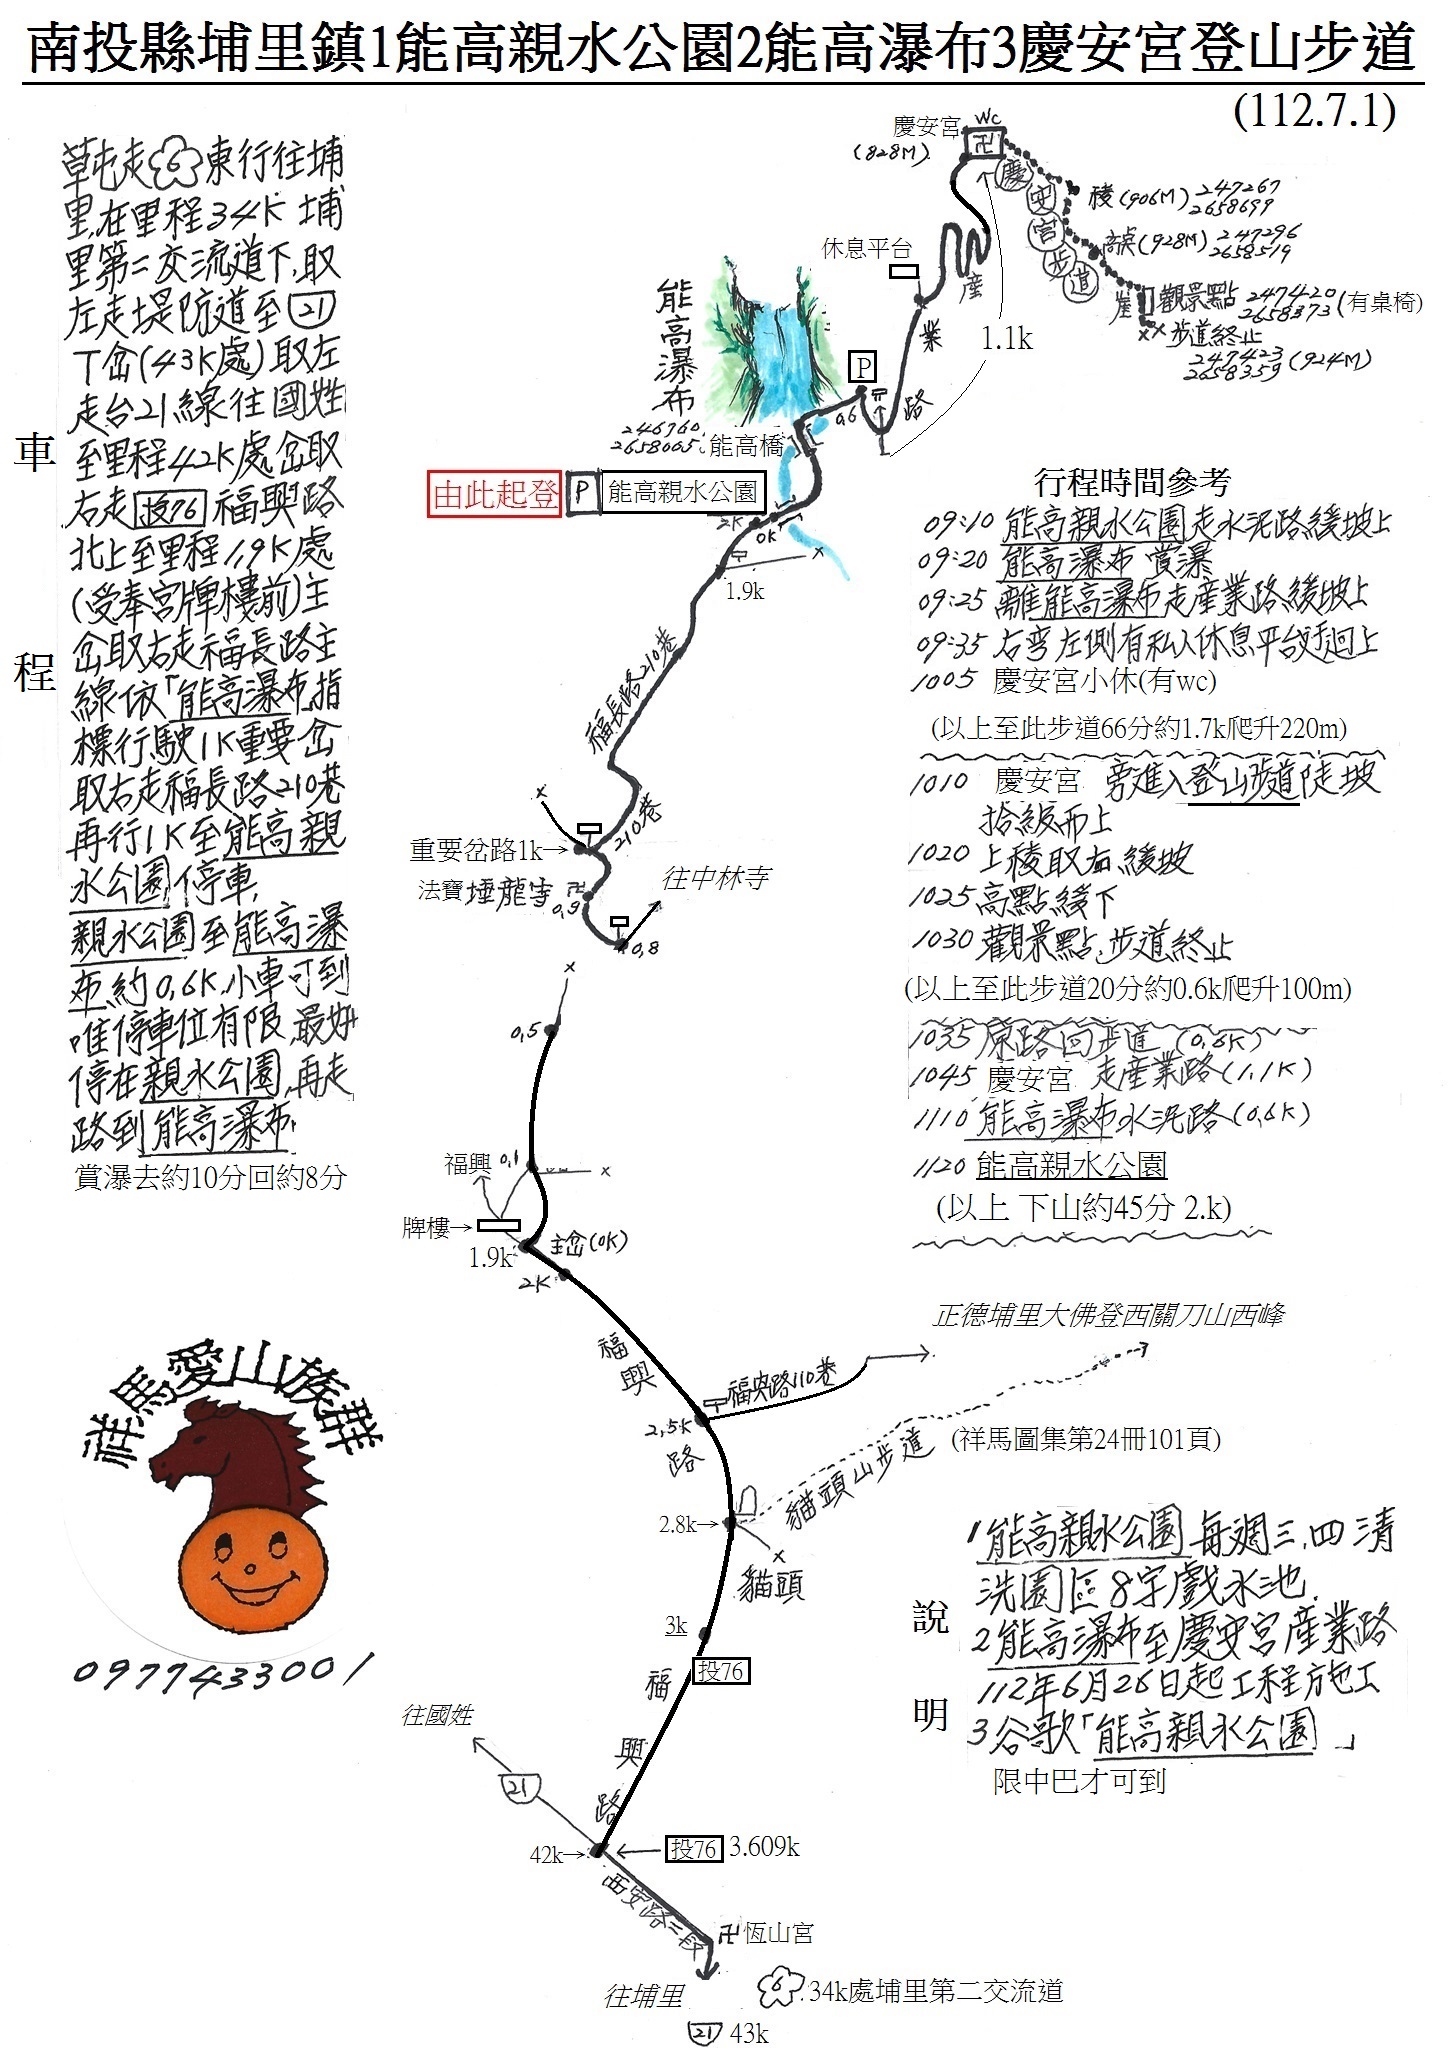 南投縣埔里鎮1能高親水公園2能高瀑布3慶安宮登山步道
(112.7.1)
車程
草屯走6東行往埔
里,在里程34K埔
里第二交流道下,取
左走堤防道至21
丁岔(43K處)取左
走台21線往國姓
至里程42K處岔取
右走投76福興路
北上至里程1.9K處
(受奉宮牌樓前)主
岔取右走福長路主
線依「能高瀑布」指
標行駛1K重要岔
取右走福長路210巷
再行1K至能高親
水公園停車,
親水公園至能高瀑
布約0.6K,小車可到
唯停車位有限,最好
停在親水公園,再走
路到能高瀑布,
賞瀑去約10分回約8分
慶安宮
WC
卍
(828M)
慶安宮步道
稜(906M) 247267
2658699
高點(928M) 247296
2658519
崖
觀景點 247420
2658373(有桌椅)
步道終止
247423
2658359(924M)
休息平台
產業路
1.1k
能高瀑布
246760
2658065
P
0.6
能高橋
由此起登
P
能高親水公園
2K
0K
x
1.9k
福長路210巷
x
210巷
重要岔路1k→
法寶埵龍寺
卍
0.9
往中林寺
0.8
x
0.5
福興
0.1
x
牌樓→
1.9k
主岔(0K)
2K
福興路
2.5K
福興路110巷
正德埔里大佛登西關刀山西峰
貓頭山步道
(祥馬圖集第24冊101頁)
2.8k→
x
貓頭
3k
投76
福興路
往國姓
21
42k→
投76 3.609k
西安路二段
卍恆山宮
往埔里
6 34k處埔里第二交流道
21 43k
行程時間參考
09:10 能高親水公園走水泥路緩坡上
09:20 能高瀑布 賞瀑
09:25 離能高瀑布走產業路緩坡上
09:35 右彎左側有私人休息平台迂迴上
1005 慶安宮小休(有wc)
(以上至此步道66分約1.7k爬升220m)
1010 慶安宮 旁進入登山步道陡坡
拾級而上
1020 上稜取右,緩坡
1025 高點緩下
1030 觀景點,步道終止
(以上至此步道20分約0.6k爬升100m)
1035 原路回步道 (0.6K)
1045 慶安宮 走產業路(1.1K)
1110 能高瀑布水泥路(0.6K)
1120 能高親水公園
(以上 下山約45分 2.k)
祥馬愛山族群
0977433001
說明
1能高親水公園每週三.四清
洗園區8字戲水池.
2能高瀑布至慶安宮產業路
112年6月26日起工程施工
3谷歌「能高親水公園」
限中巴才可到